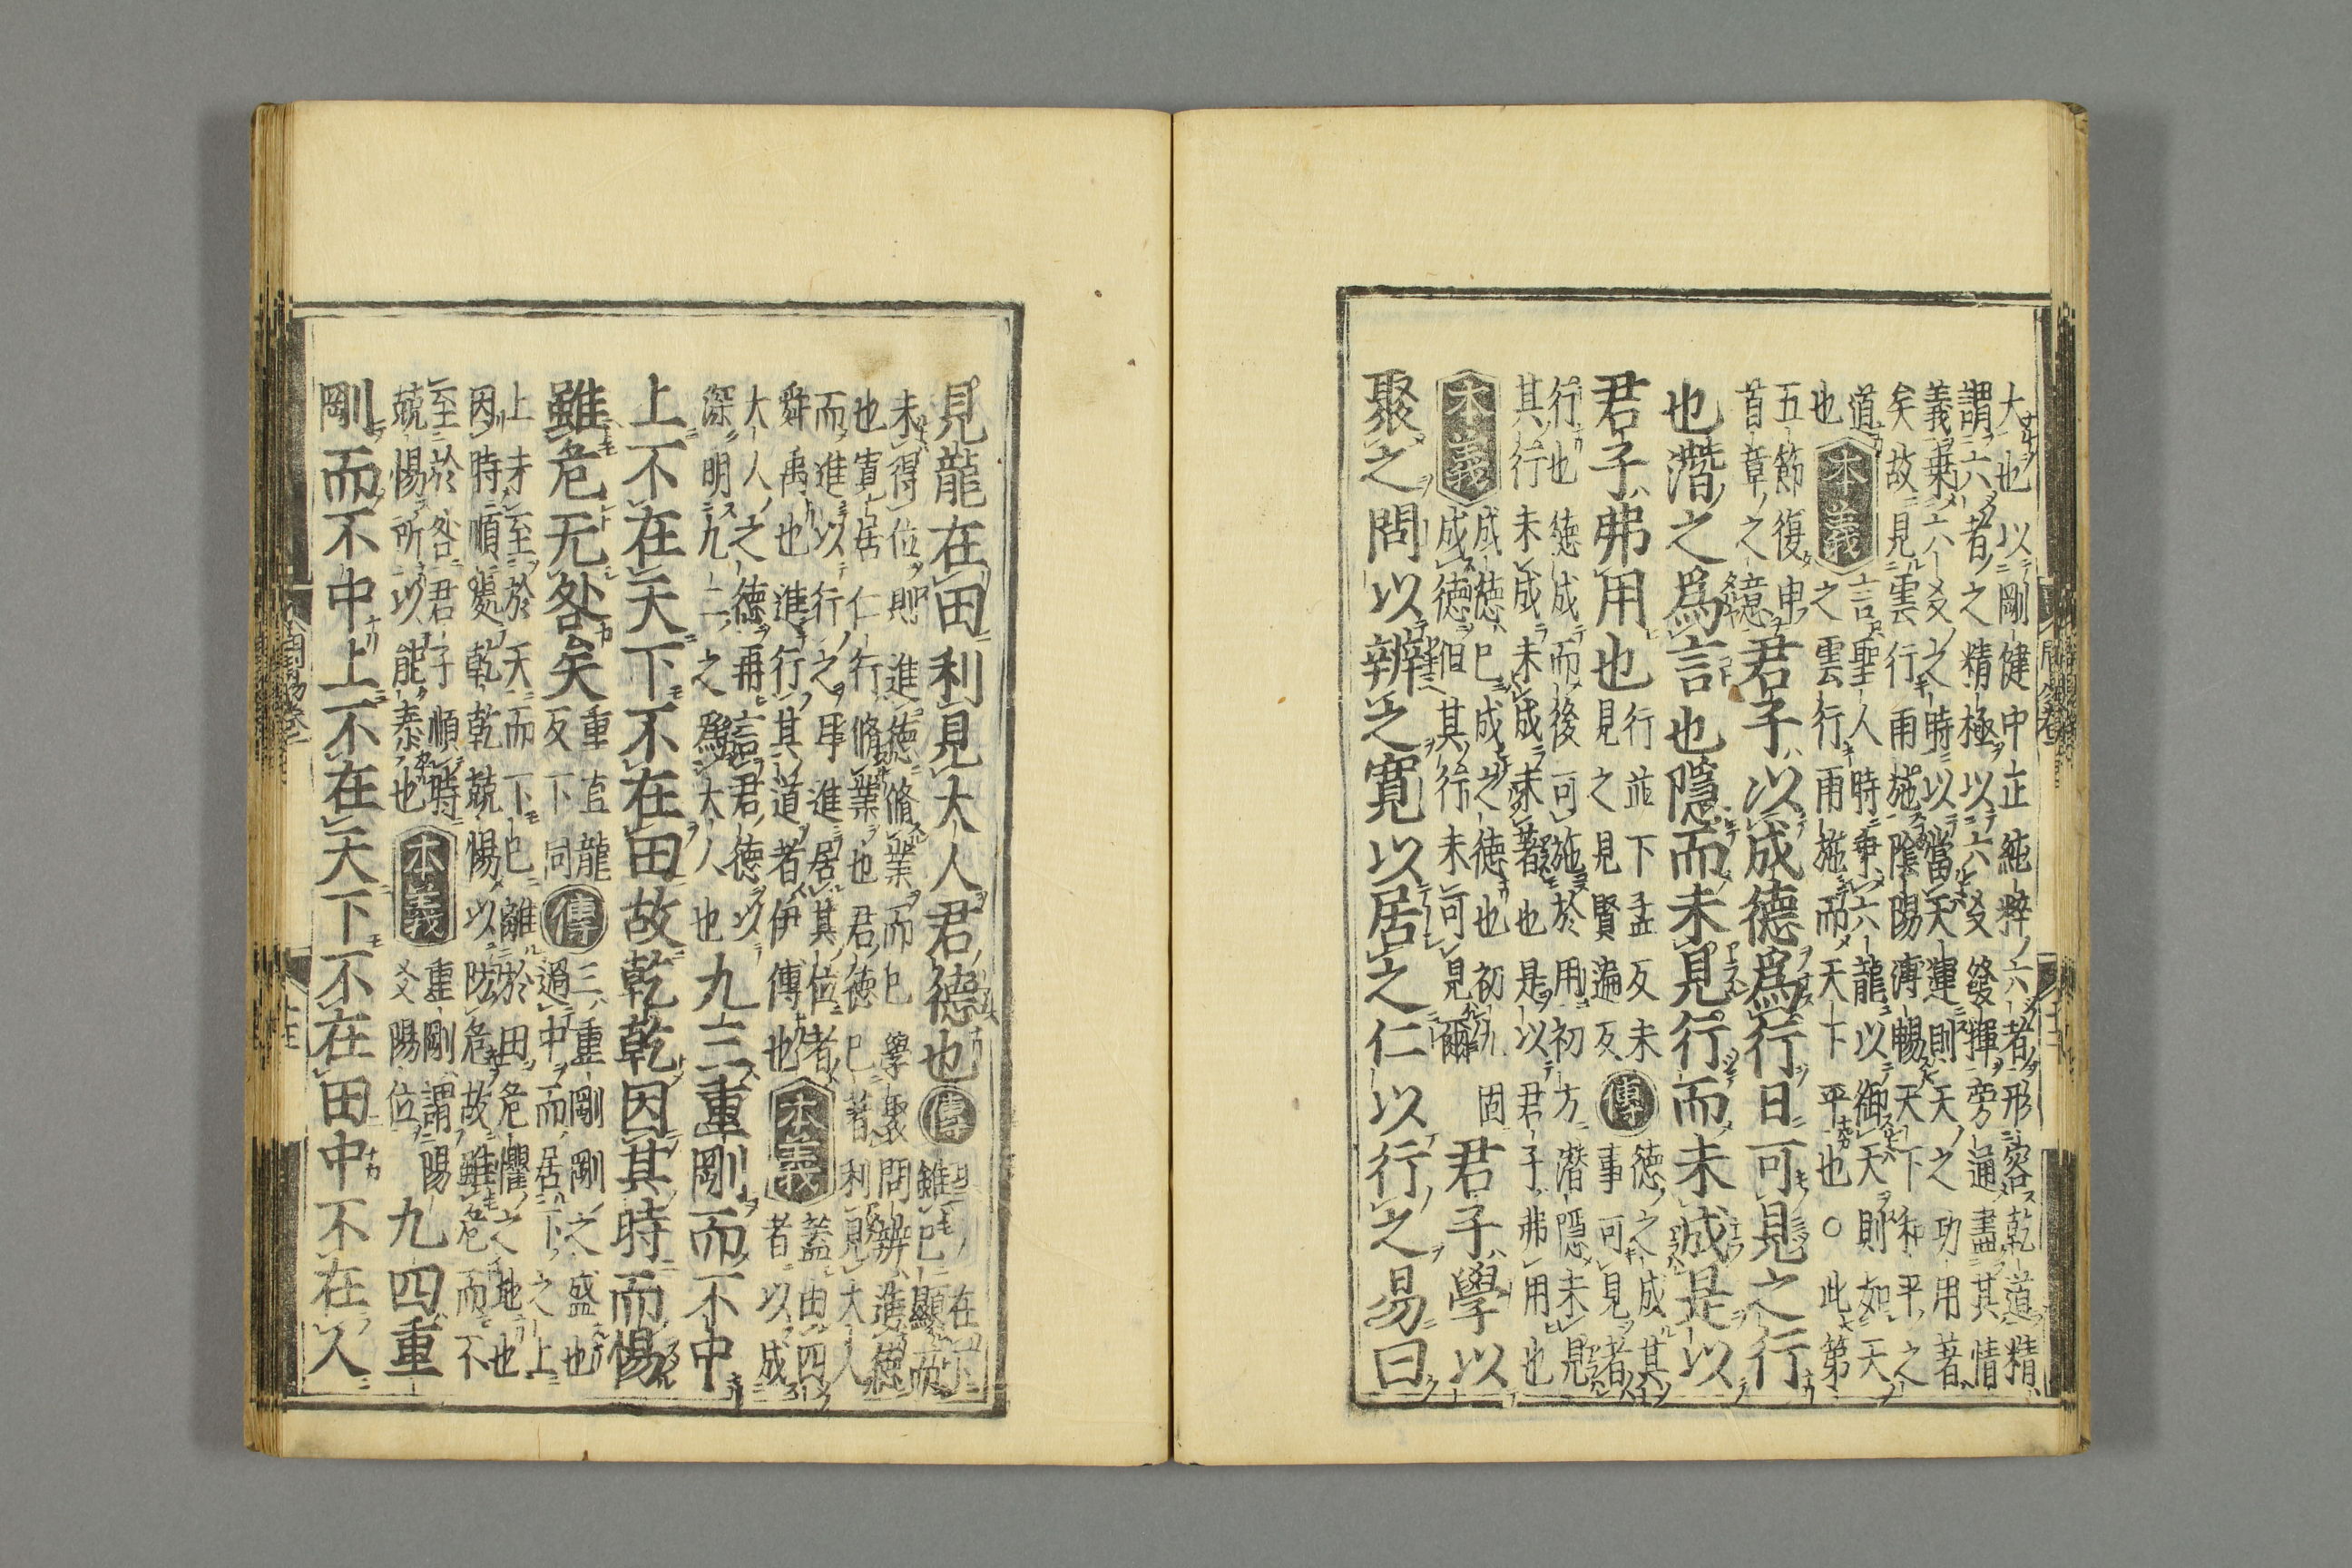 大也以剛健中正純粹六者形容乾道精
謂六者之精極以六爻發揮旁通盡其情
義乗六爻之時以當天運則天之功用著
矣故見雲行雨施陰陽溥暢天下和平之
道本義言聖人時乗六龍以御天則如天
也之雲行雨施而天下平也○此第
五節復申
首章之意君子以成德爲行日可見之行
也潛之爲言也隱而未見行而未成是以
君子弗用也行並下孟反未
見之見賢遍反傳德之成其
事可見者
行也德成而後可施於用初方潛隱未見
其行未成未成未著也是以君子弗用也
本義成德已成之德也初九固
成德但其行未可見爾君子學以
聚之問以辨之寬以居之仁以行之易曰
見龍在田利見大人君德也傳聖人在下
雖已顯而
未得位則進德脩業而已學聚問辨進德
也寛居仁行脩業也君德已著利見大人
而進以行之耳進居其位者
舜禹也進行其道者伊傅也本義蓋由四
者以成
大人之德再言君德以
深明九二之爲大人也九三重剛而不中
上不在天下不在田故乾乾因其時而惕
雖危无咎矣重直龍
反下同傳三重剛剛之盛也
過中而居下之上
上未至於天而下已離於田危懼之地也
因時順處乾乾兢惕以防危故雖危而不
至於咎君子順時
兢惕所以能泰也本義重剛謂陽
爻陽位九四重
剛而不中上不在天下不在田中不在人